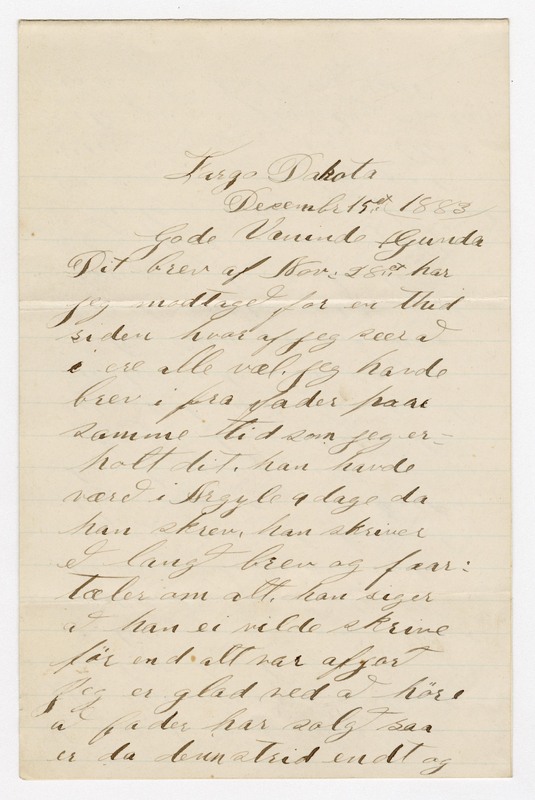 Fargo Dakota
Decembr 15st 1883
Gode Veninde Gunda
Dit brev af Nov. 28st har
jeg modtaget for en thid
siden hvor af jeg seer ad
i ere alle vel. jeg havde
brev i fra fader paae
samme tid som jeg er=
holt dit. han havde
værd i Argyle 9 dage da
han skrev, han skriver
et langt brev og faar:
tæler om alt. han siger
at han ei vilde skrive
för end alt var afgort
Jeg er glad ved at höre
at fader har solgt saa
er da denn strid endt og